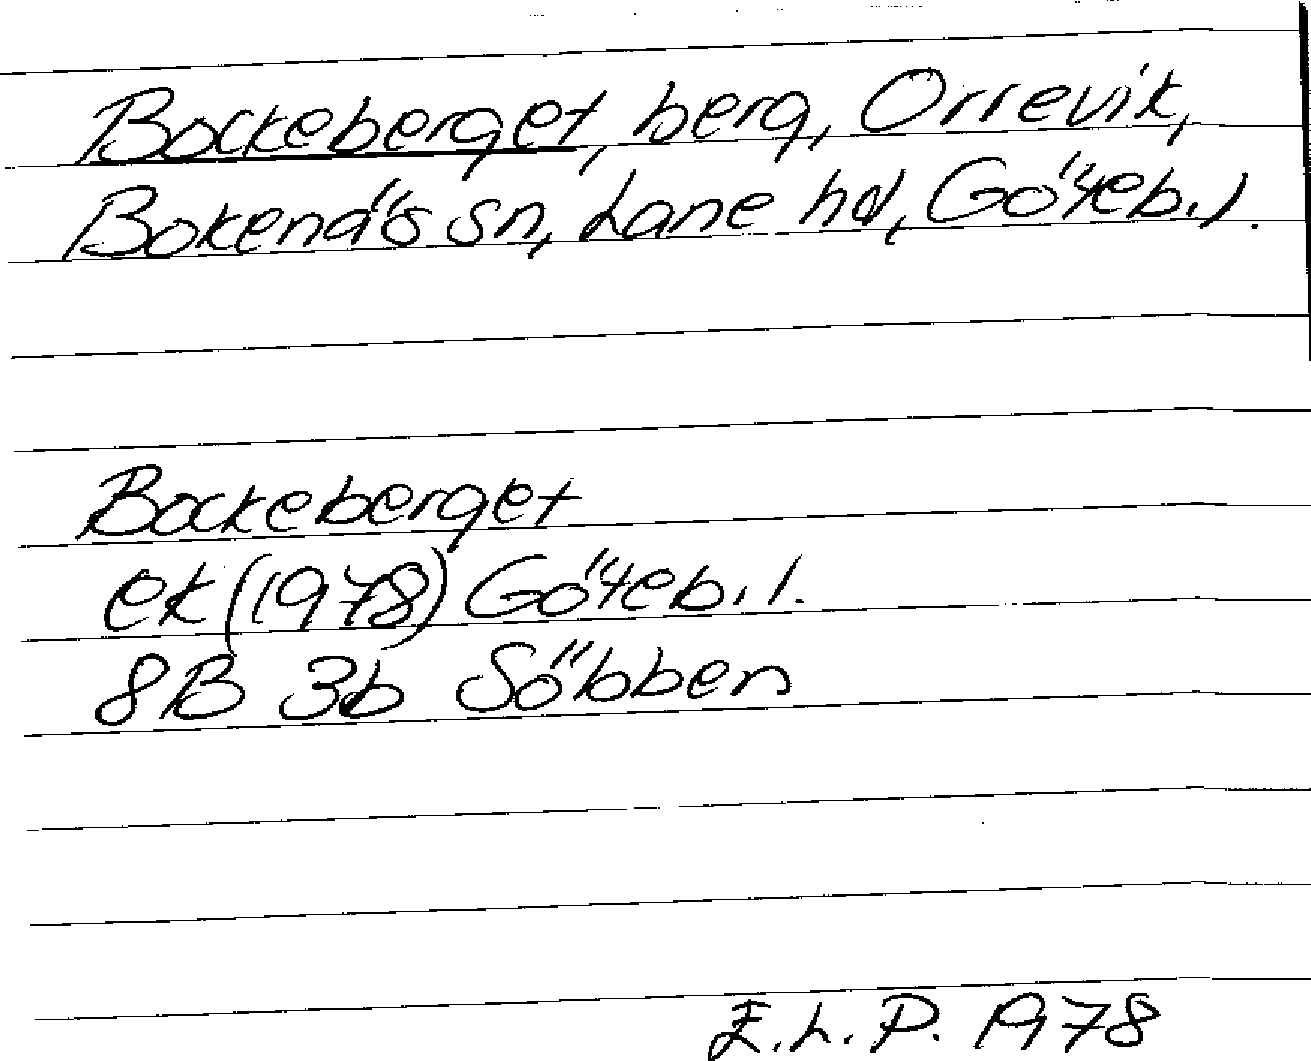 Bockeberget, berg, Orrevik,
Bokenäs sn, Lane hd, Göteb. l.
Bockeberget
ek (1978) Göteb. l.
8B 3b Söbben
E.L.P. 1978